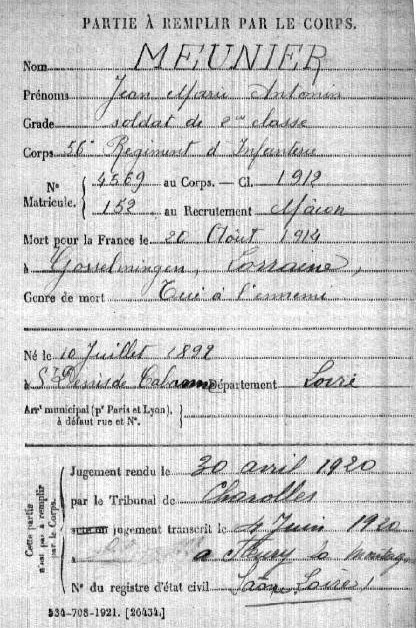 PARTIE À REMPLIR PAR LE CORPS.
Nom MEUNIER
Prénoms Jean Marie Antonin
Grade soldat de 2me classe
Corps 56e Régiment d'Infanterie
N° Matricule. { 4569 au Corps. — Cl. 1912
152 au Recrutement Mâcon
Mort pour la France le 20 Août 1914
à Gosselmingen, Lorraine,
Genre de mort Tué à l'ennemi
Né le 10 Juillet 1892
à St Denis de Cabanne Département Loire
Arrt municipal (pr Paris et Lyon), à défaut rue et N°. }
Cette partie n'est pas à remplir par le Corps.
Jugement rendu le 30 avril 1920
par le Tribunal de Charolles
jugement transcrit le 4 Juin 1920
à Fleury la Montagne
N° du registre d'état civil Saône Loire
534-708-1921. [20434.]